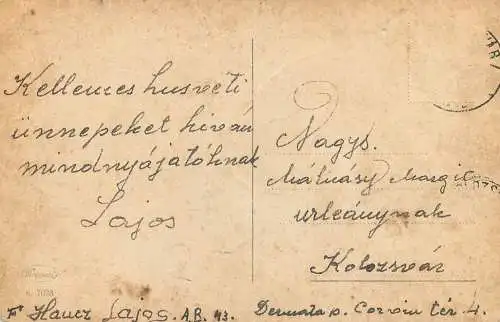 Kellemes husveti
ünnepeket hiván
mindnyájatóknak
Lajos
Nagys.
Mátyásy Margit
urleánynak
Kolozsvár
Lajos. A.B. 43.
Dermata p. Corvin tér. 4.